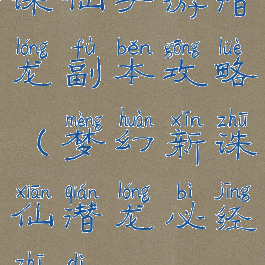 lóng fù běn gōng lüè
龙副本攻略
mèng huàn xīn zhū
（梦幻新诛
xiān qián lóng bì jīng
仙潜龙必经
zhī dì